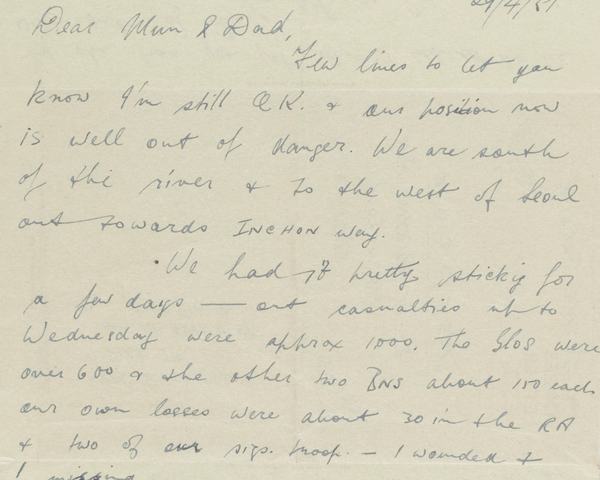 29/4/51
Dear Mum & Dad,
Few lines to let you
know I'm still O.K. & our position now
is well out of danger. We are south
of the river & to the west of Seoul
out towards INCHON way.
We had it pretty sticky for
a few days — our casualties up to
Wednesday were approx 1000. The Glos were
over 600 & the other two BNS about 150 each
our own losses were about 30 in the RA
& two of our sigs. troop. — 1 wounded &
1 missing